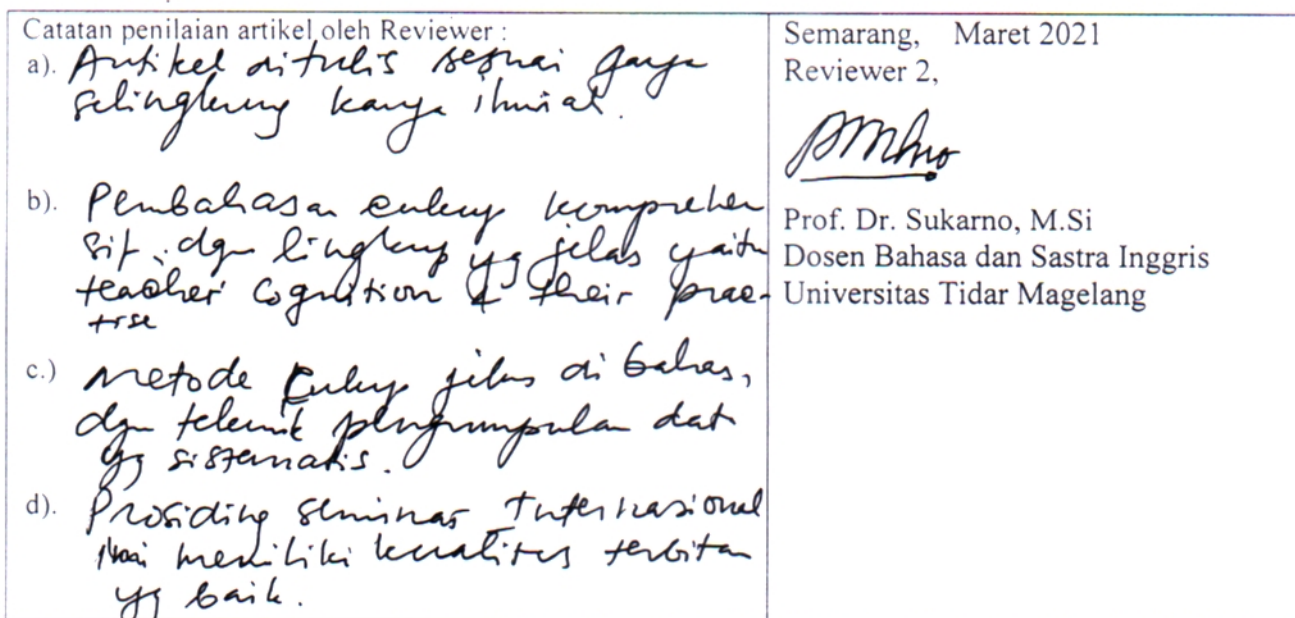 Catatan penilaian artikel oleh Reviewer :
a). Artikel ditulis sesuai gaya
selingkung karya ilmiah.
b). Pembahasan cukup komprehen
sif, dgn lingkup yg jelas yaitu
teacher cognition & their prac-
tise
c.) Metode cukup jelas di bahas,
dgn teknik pengumpulan data
yg sistematis.
d). Prosiding seminar Internasional
ini memiliki kualitas terbitan
yg baik.
Semarang, Maret 2021
Reviewer 2,
Prof. Dr. Sukarno, M.Si
Dosen Bahasa dan Sastra Inggris
Universitas Tidar Magelang